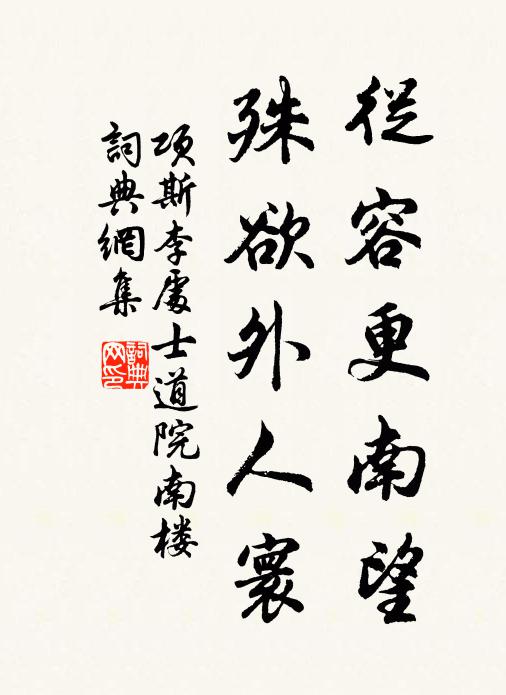 從容更南望
殊欲外人寰
項斯李處士道院南楼
詞典網集
詞典
网印